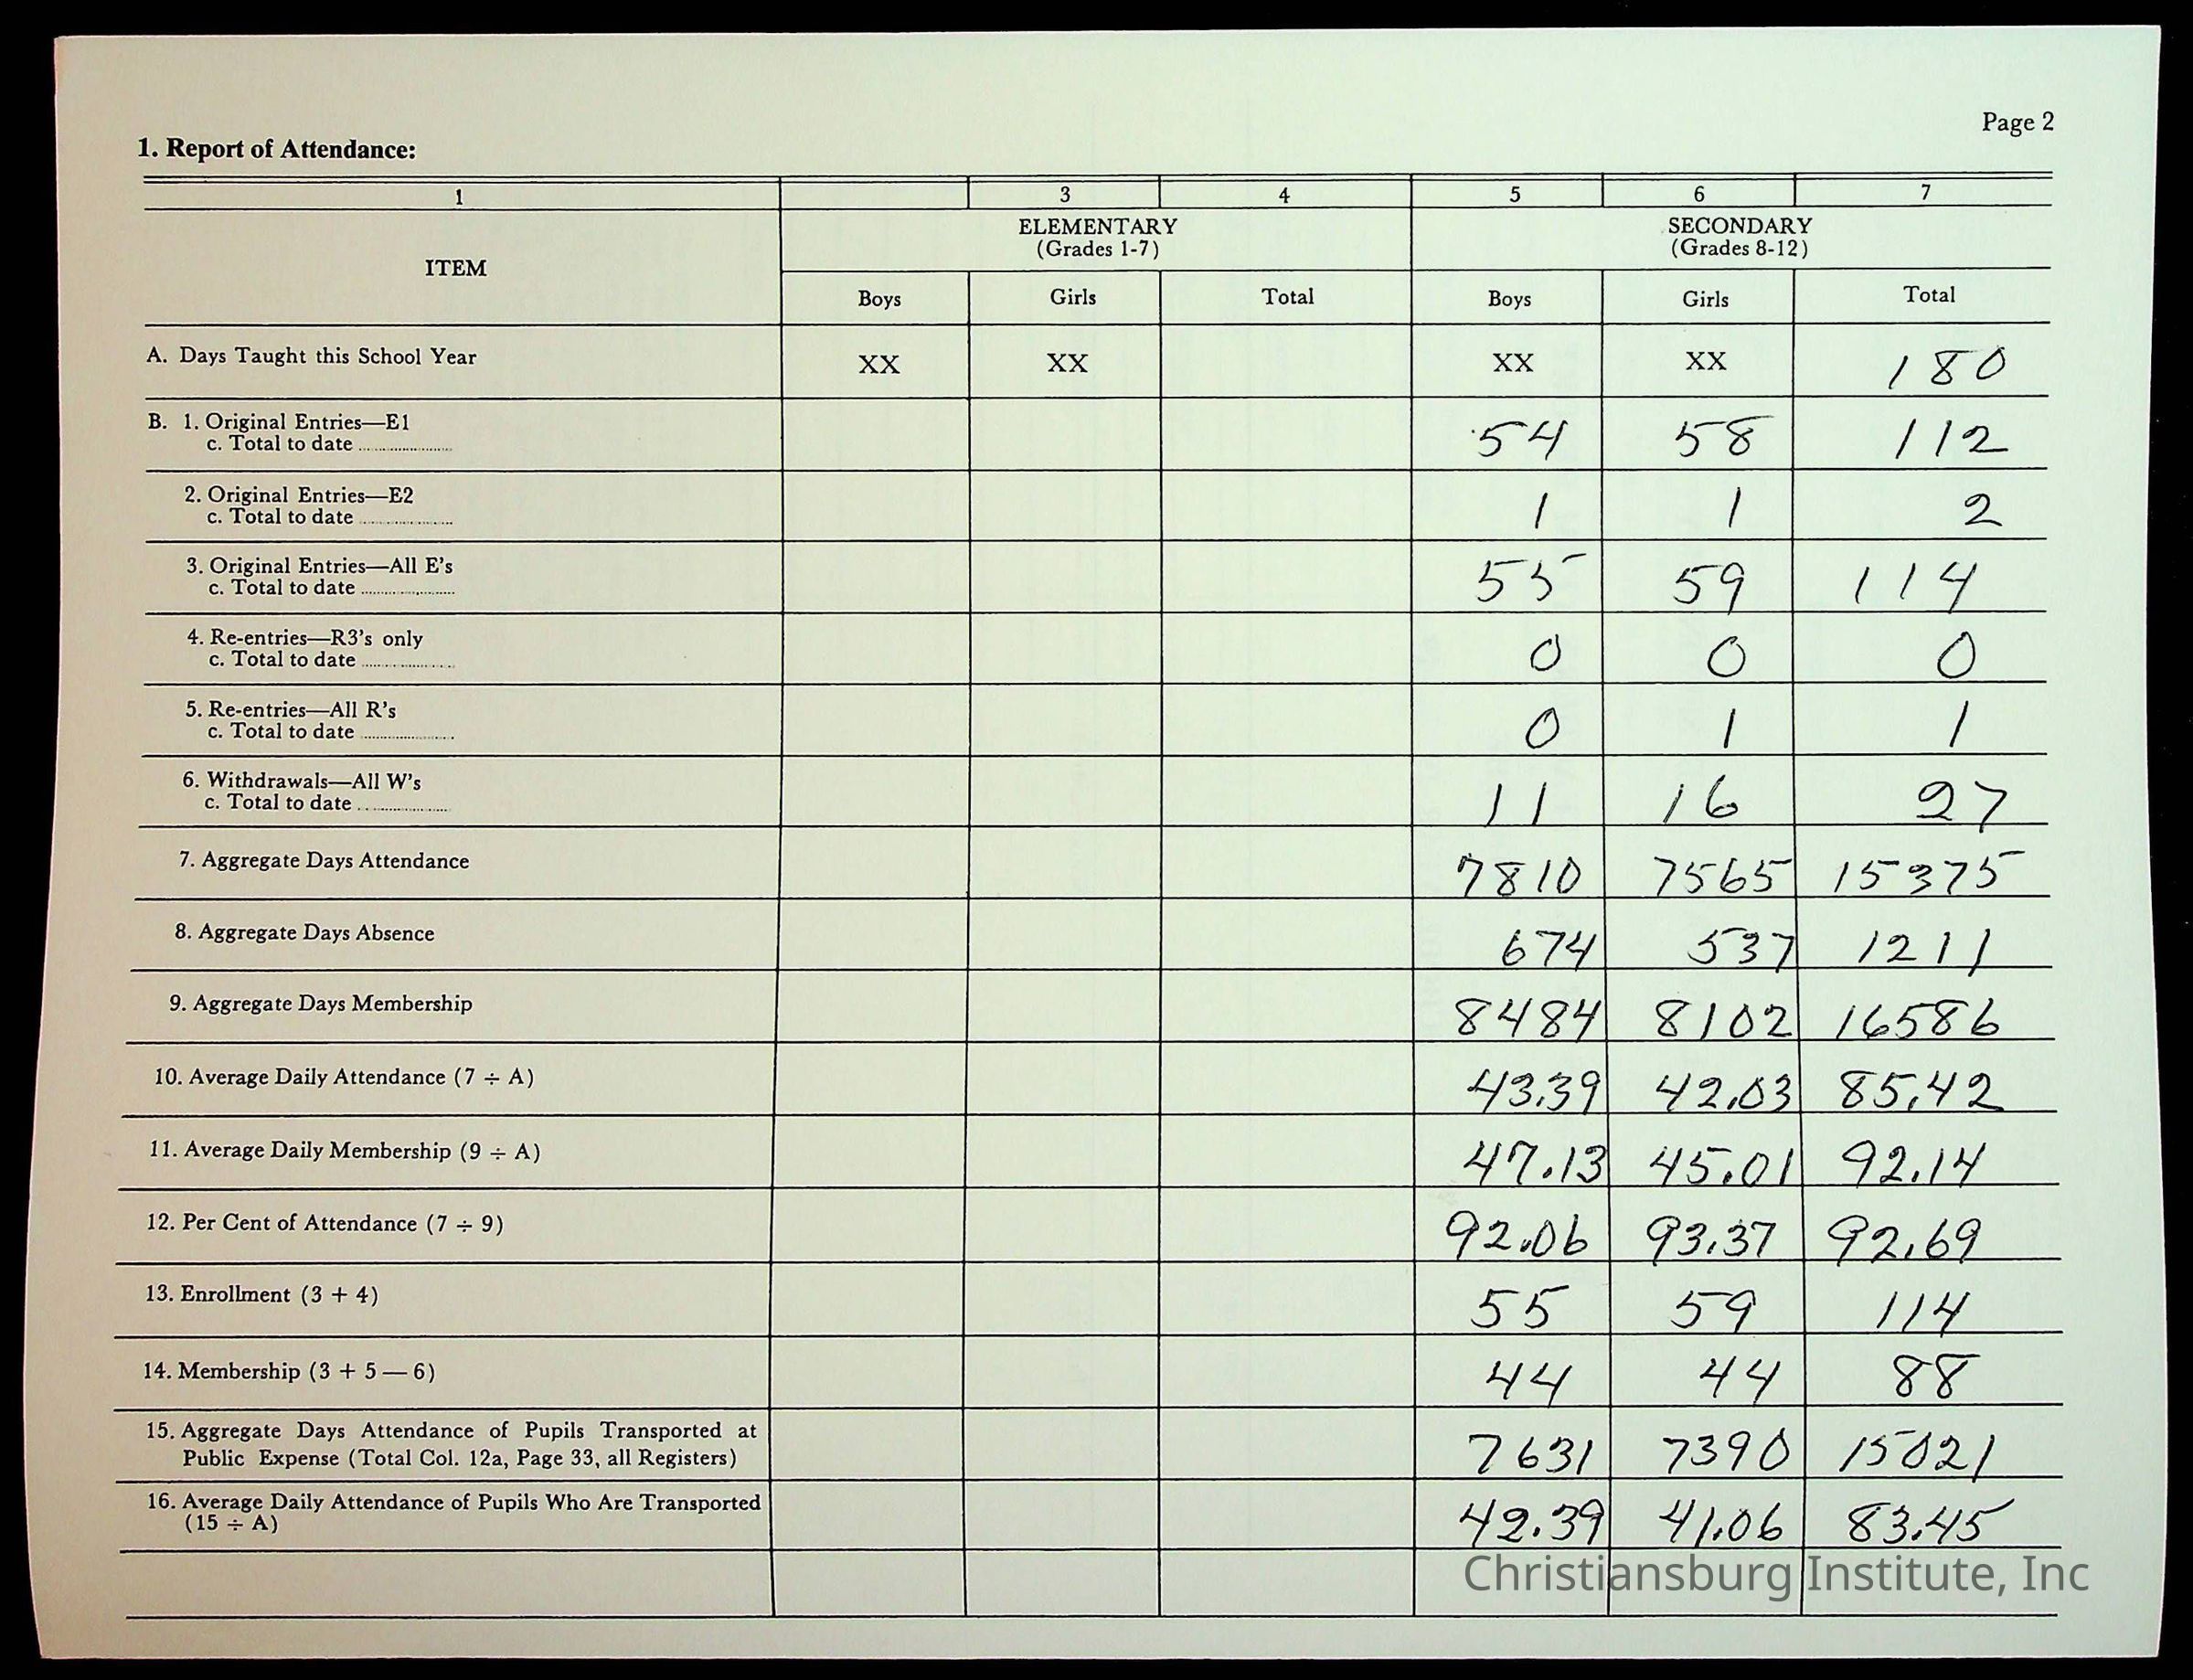 Page 2
1. Report of Attendance:
1 3 4 5 6 7
ITEM
ELEMENTARY
(Grades 1-7)
SECONDARY
(Grades 8-12)
Boys Girls Total Boys Girls Total
A. Days Taught this School Year XX XX XX XX 180
B. 1. Original Entries—E1
c. Total to date ........................ 54 58 112
2. Original Entries—E2
c. Total to date ........................ 1 1 2
3. Original Entries—All E's
c. Total to date ........................ 55 59 114
4. Re-entries—R3's only
c. Total to date ........................ 0 0 0
5. Re-entries—All R's
c. Total to date ........................ 0 1 1
6. Withdrawals—All W's
c. Total to date ........................ 11 16 27
7. Aggregate Days Attendance 7810 7565 15375
8. Aggregate Days Absence 674 537 1211
9. Aggregate Days Membership 8484 8102 16586
10. Average Daily Attendance (7 ÷ A) 43.39 42.03 85.42
11. Average Daily Membership (9 ÷ A) 47.13 45.01 92.14
12. Per Cent of Attendance (7 ÷ 9) 92.06 93.37 92.69
13. Enrollment (3 + 4) 55 59 114
14. Membership (3 + 5 — 6) 44 44 88
15. Aggregate Days Attendance of Pupils Transported at
Public Expense (Total Col. 12a, Page 33, all Registers) 7631 7390 15021
16. Average Daily Attendance of Pupils Who Are Transported
(15 ÷ A) 42.39 41.06 83.45
Christiansburg Institute, Inc